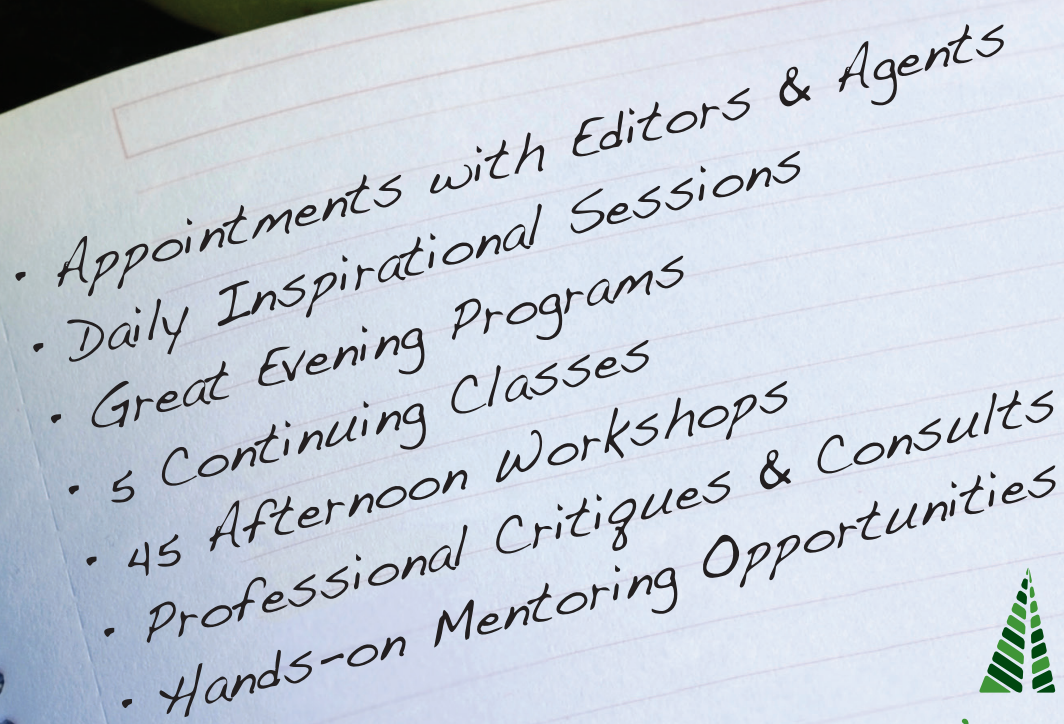 · Appointments with Editors & Agents
· Daily Inspirational Sessions
· Great Evening Programs
· 5 Continuing Classes
· 45 Afternoon Workshops
· Professional Critiques & Consults
· Hands-on Mentoring Opportunities